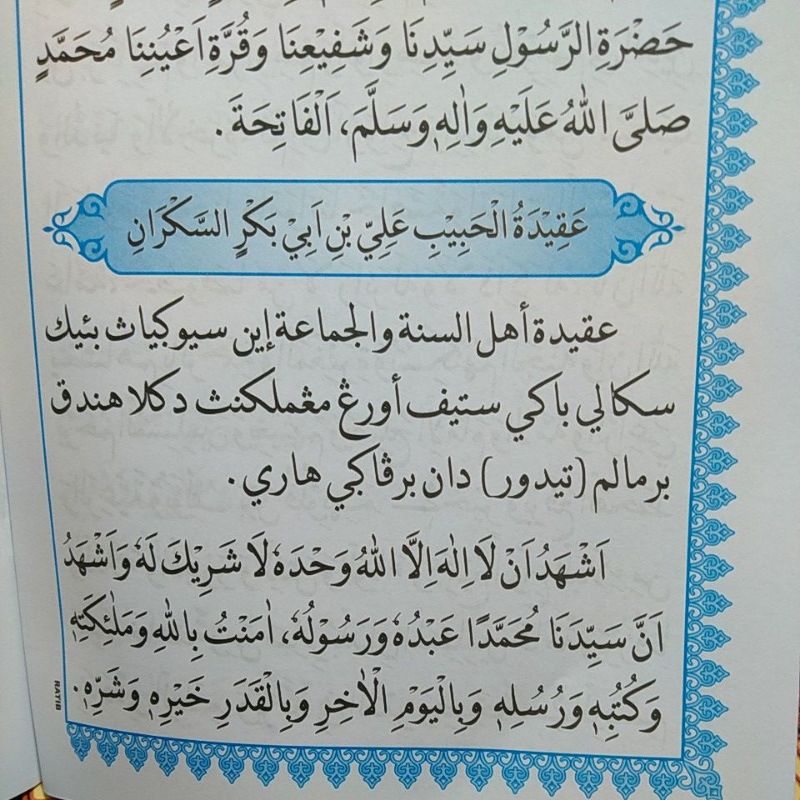 حَضْرَةِ الرَّسُوْلِ سَيِّدِنَا وَشَفِيْعِنَا وَقُرَّةِ اَعْيُنِنَا مُحَمَّدٍ
صَلىَّ اللهُ عَلَيْهِ وَاٰلِهٖ وَسَلَّمَ، اَلْفَاتِحَةَ.
عَقِيْدَةُ الْحَبِيْبِ عَلِيّ بْنِ اَبِيْ بَكْرٍ السَّكْرَانِ
عقيدة أهل السنة والجماعة إين سيوكياث بئيك
سكالي باكي ستيف أورڠ مڠملكنث دكلا هندق
برمالم (تيدور) دان برڤاكي هاري.
اَشْهَدُ اَنْ لَا اِلٰهَ اِلَّا اللهُ وَحْدَهٗ لَا شَرِيْكَ لَهٗ وَاَشْهَدُ
اَنَّ سَيِّدَنَا مُحَمَّدًا عَبْدُهٗ وَرَسُوْلُهٗ، اٰمَنْتُ بِاللهِ وَمَلٰئِكَتِهٖ
وَكُتُبِهٖ وَرُسُلِهٖ وَبِالْيَوْمِ الْاٰخِرِ وَبِالْقَدَرِ خَيْرِهٖ وَشَرِّهٖ.
RATIB